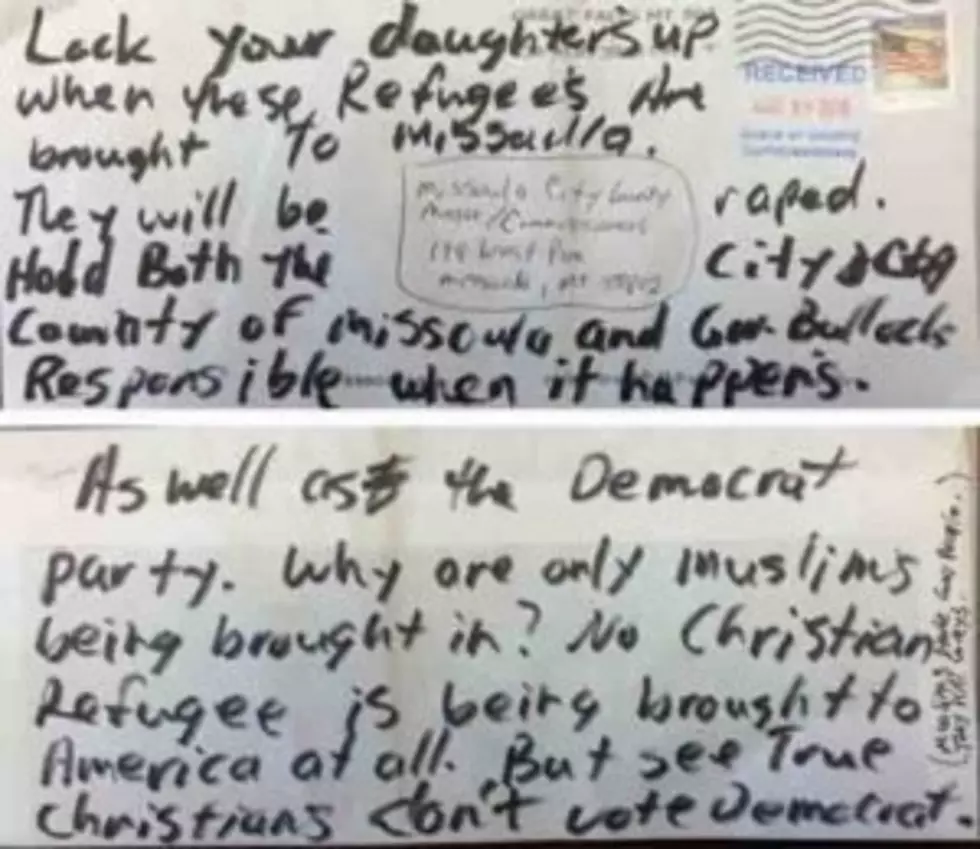 GREAT FALLS MT
Lock your daughter's up
RECEIVED
when these Refugee's Are
brought To Missoula.
Missoula City County
They will be raped.
Mayor/Commissioners
Hold Both the City &
Missoula, MT
County of Missoula and Gov. Bullock
Responsible when it happens.
As well as the Democrat
party. Why are only muslim's
being brought in? No Christian
Refugee is being brought to
America at all. But see True
Christians don't vote Democrat.